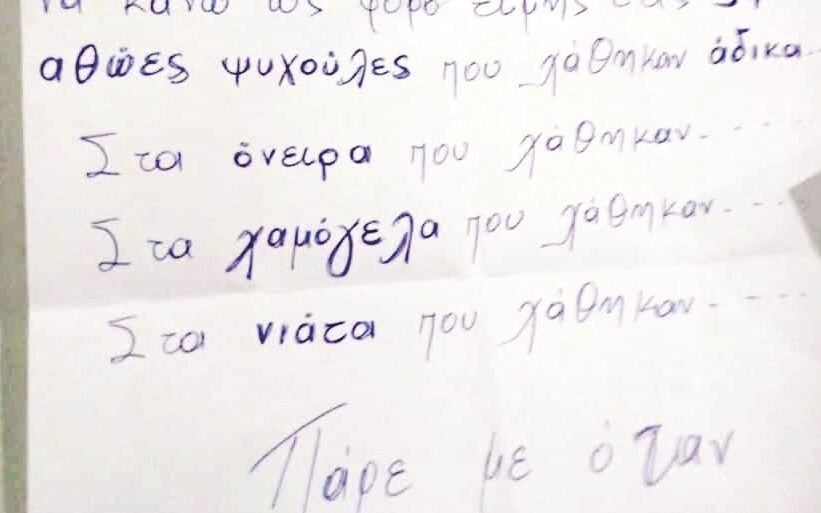 να κάνω ως φόρο τιμής στις 57
αθώες ψυχούλες που χάθηκαν άδικα..
Στα όνειρα που χάθηκαν.....
Στα χαμόγελα που χάθηκαν.....
Στα νιάτα που χάθηκαν.....
Πάρε με όταν